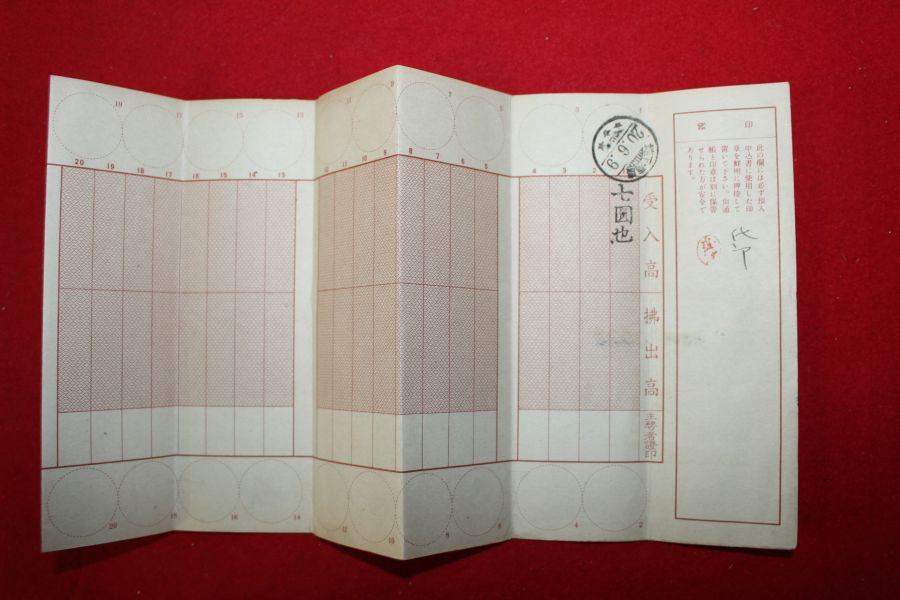 印鑑
此の欄には必ず預入
申込書に使用した印
章を鮮明に押捺して
置いて下さい。尚通
帳と印章は別に保管
せられた方が安全で
あります。
代印
20.6.9
七圓也
受入高
拂出高
主務者證印
19 17 15 13 11 9 7 5 3 1
20 19 18 17 16 15 14 13 12 11 10 9 8 7 6 5 4 3 2
20 18 16 14 12 10 8 6 4 2